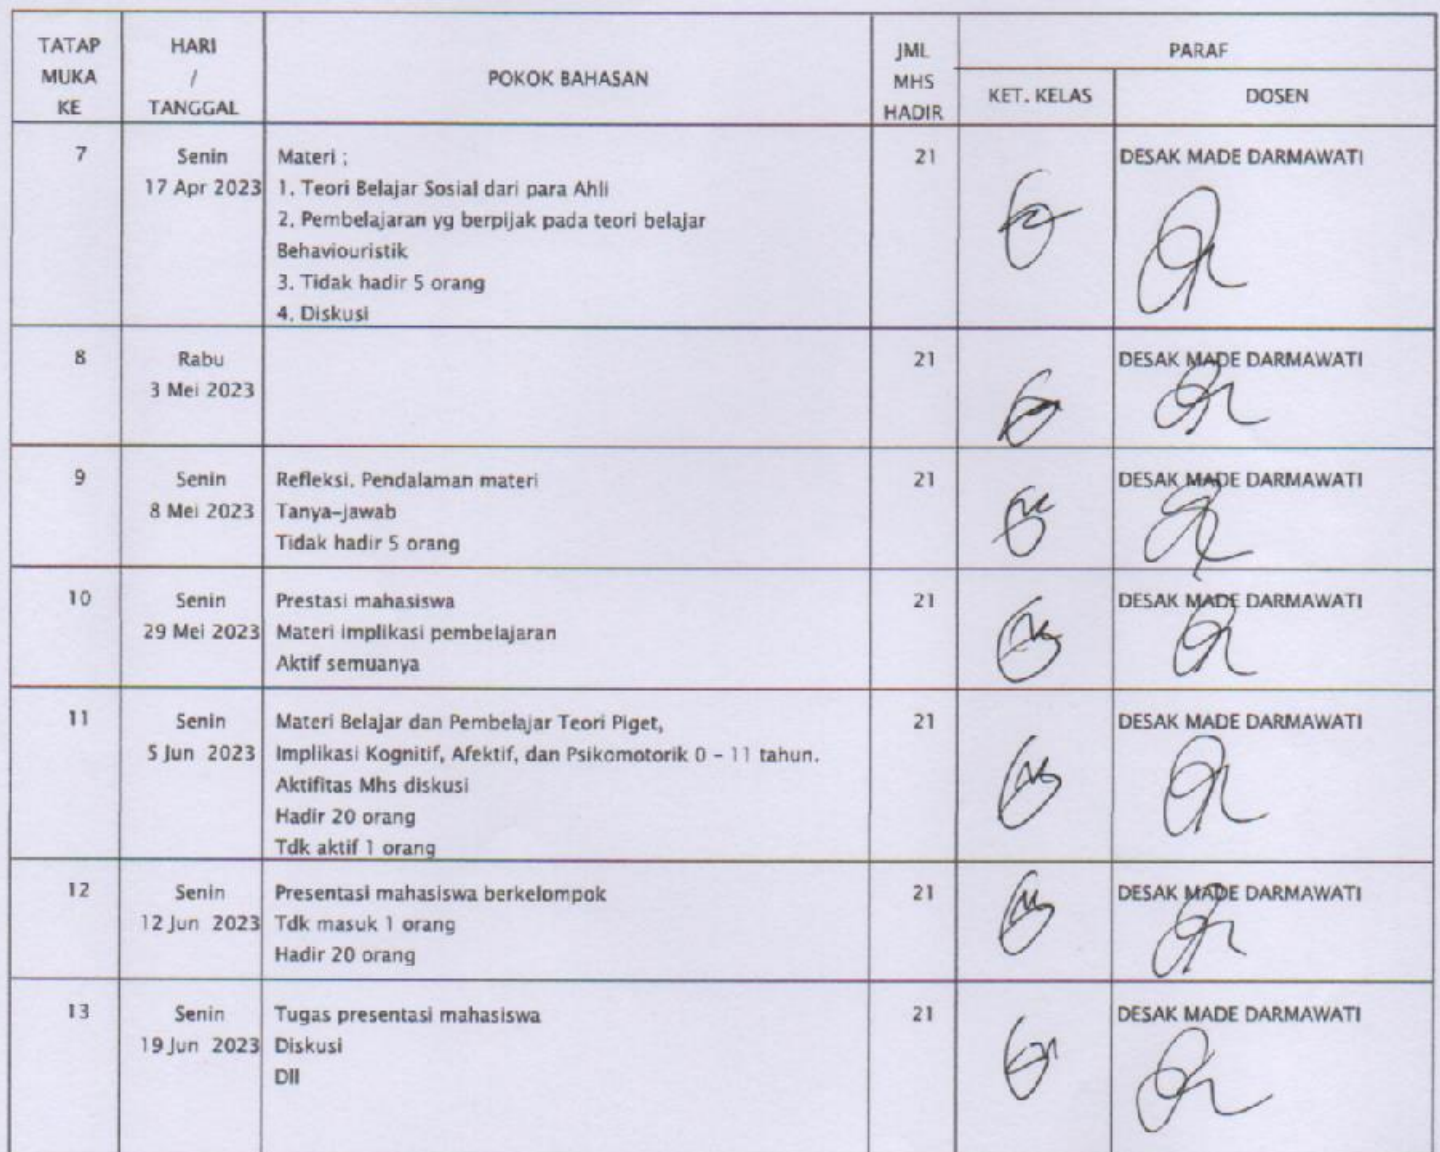 TATAP MUKA KE
HARI / TANGGAL
POKOK BAHASAN
JML MHS HADIR
PARAF
KET. KELAS
DOSEN
7
Senin
17 Apr 2023
Materi ;
1. Teori Belajar Sosial dari para Ahli
2. Pembelajaran yg berpijak pada teori belajar
Behaviouristik
3. Tidak hadir 5 orang
4. Diskusi
21
DESAK MADE DARMAWATI
8
Rabu
3 Mei 2023
21
DESAK MADE DARMAWATI
9
Senin
8 Mei 2023
Refleksi. Pendalaman materi
Tanya-jawab
Tidak hadir 5 orang
21
DESAK MADE DARMAWATI
10
Senin
29 Mei 2023
Prestasi mahasiswa
Materi implikasi pembelajaran
Aktif semuanya
21
DESAK MADE DARMAWATI
11
Senin
5 Jun 2023
Materi Belajar dan Pembelajar Teori Piget,
Implikasi Kognitif, Afektif, dan Psikomotorik 0 - 11 tahun.
Aktifitas Mhs diskusi
Hadir 20 orang
Tdk aktif 1 orang
21
DESAK MADE DARMAWATI
12
Senin
12 Jun 2023
Presentasi mahasiswa berkelompok
Tdk masuk 1 orang
Hadir 20 orang
21
DESAK MADE DARMAWATI
13
Senin
19 Jun 2023
Tugas presentasi mahasiswa
Diskusi
Dll
21
DESAK MADE DARMAWATI